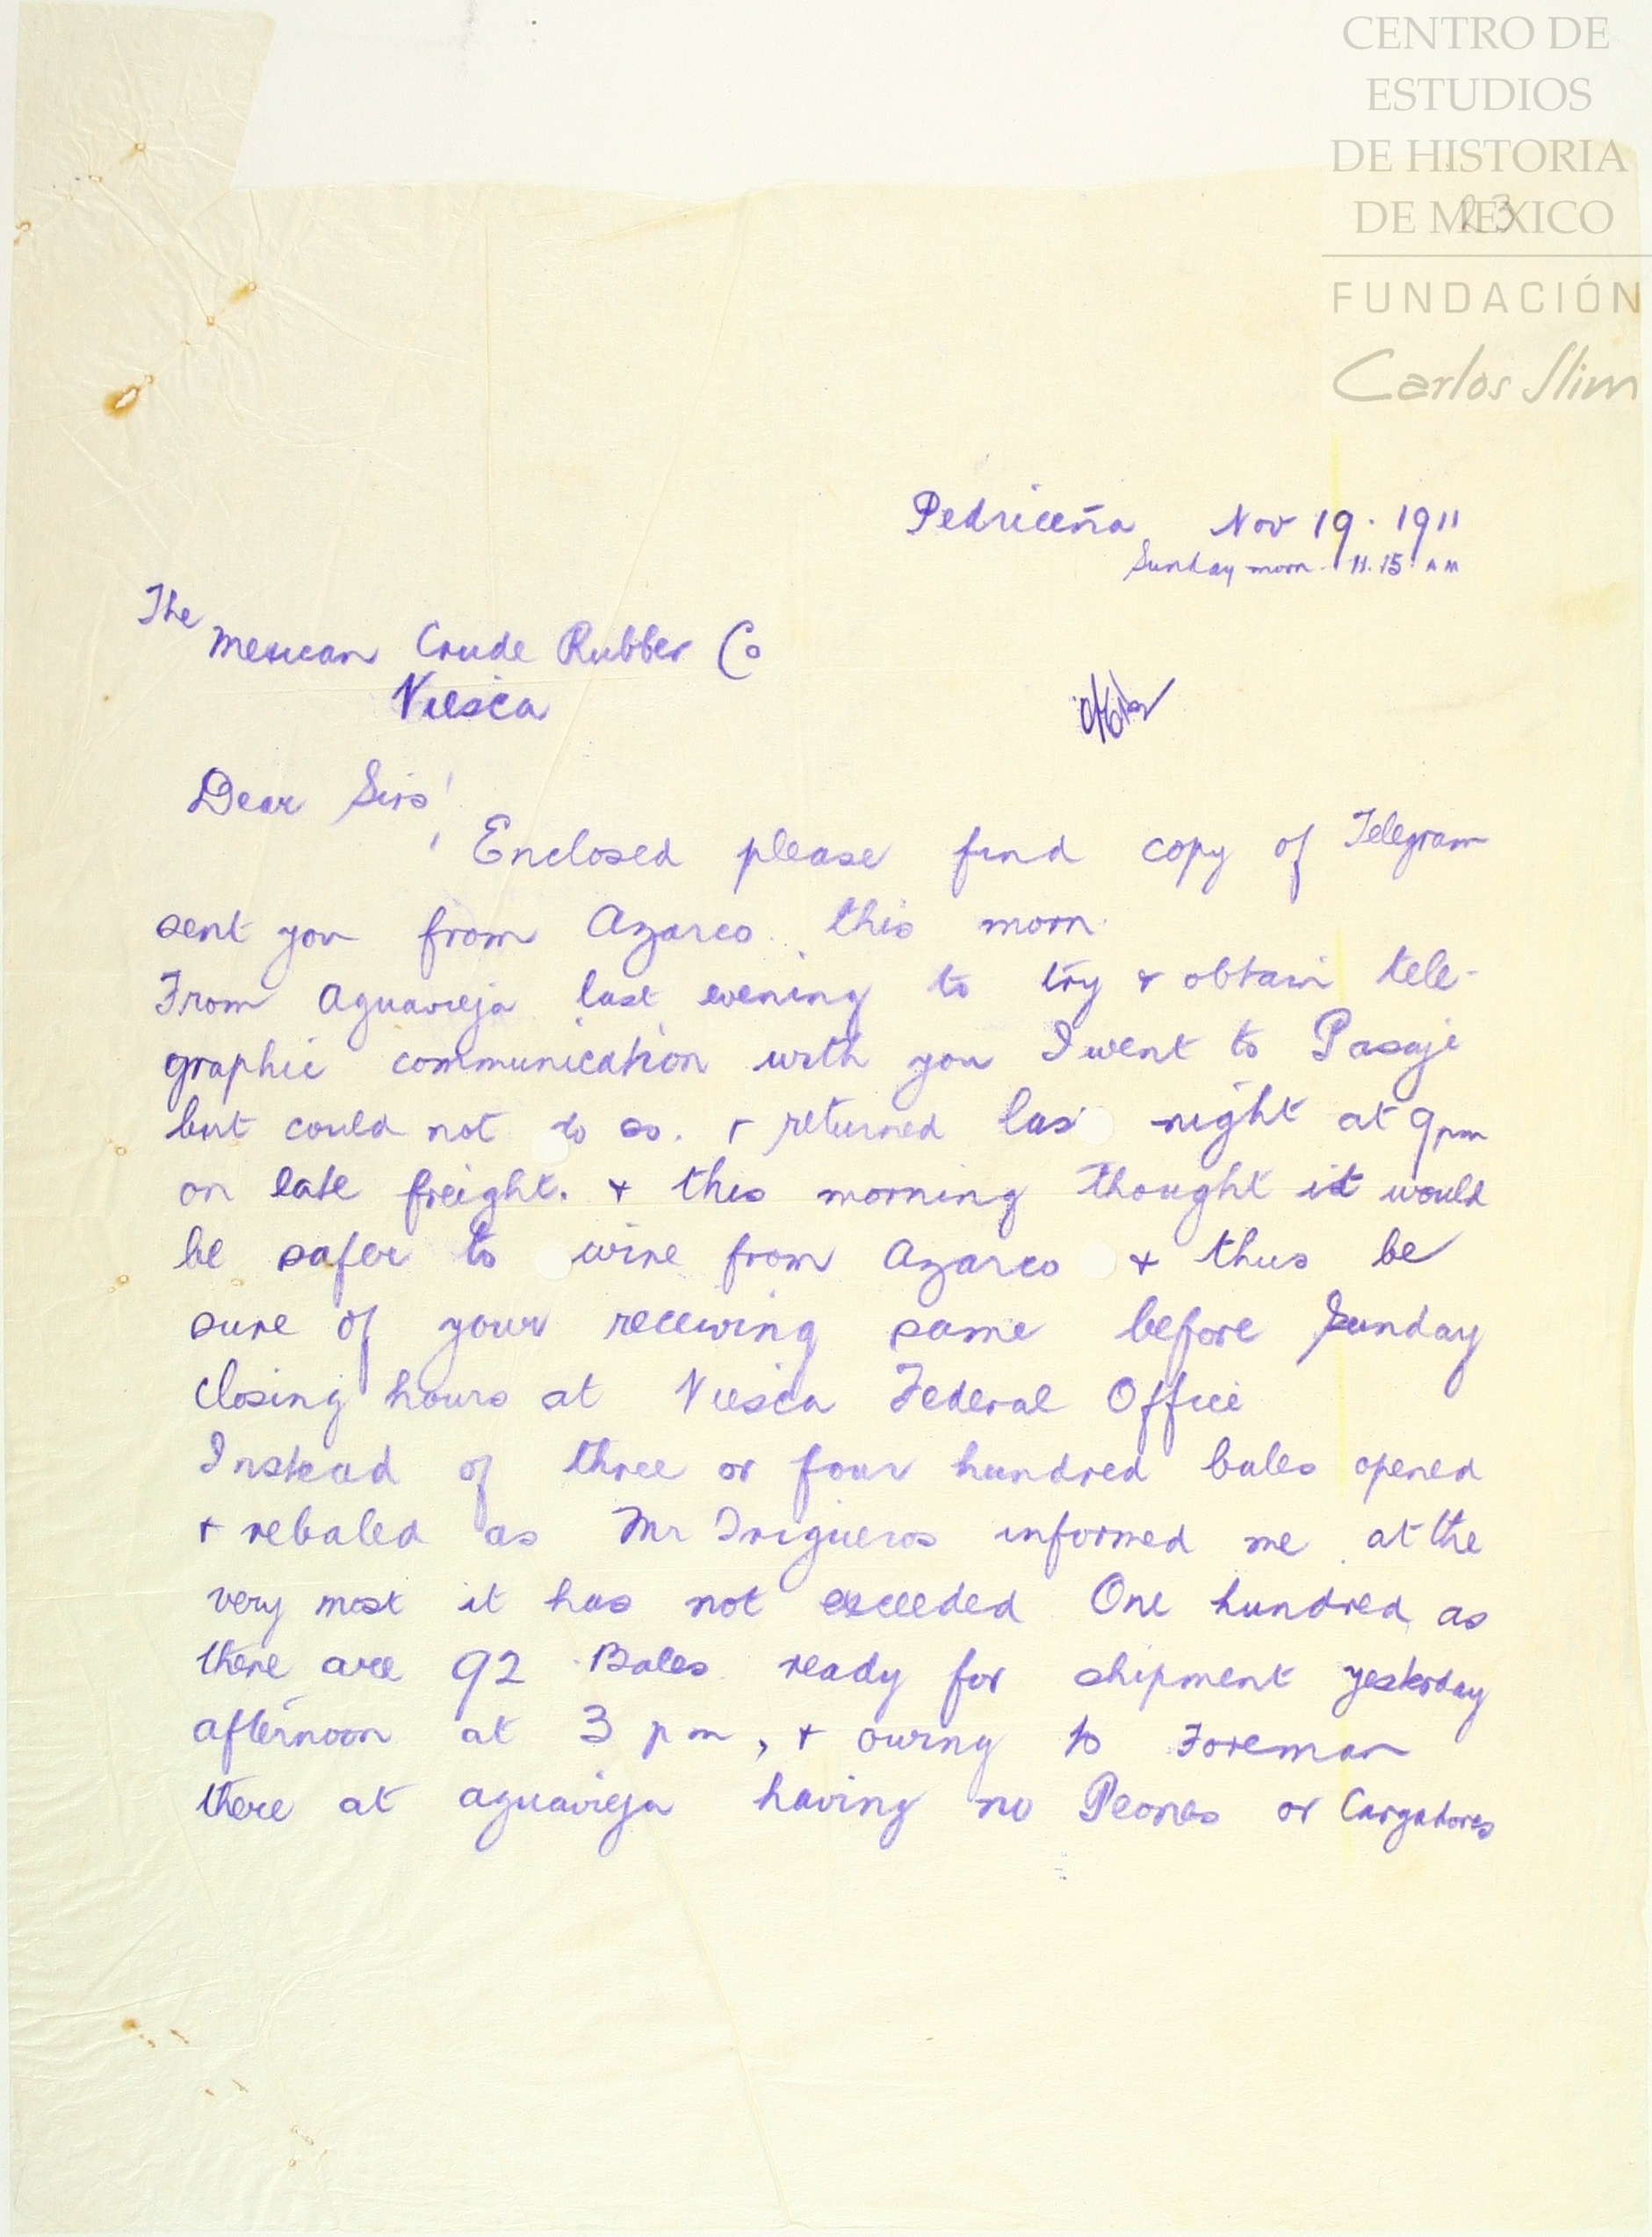 CENTRO DE
ESTUDIOS
DE HISTORIA
DE MEXICO
23
FUNDACIÓN
Carlos Slim
Pedriceña Nov 19. 1911
Sunday morn. 11.15 AM
The
Mexican Crude Rubber Co
Viesca
Dear Sirs
Enclosed please find copy of Telegram
sent you from Azarco this morn.
From Aguavieja last evening to try + obtain tele-
graphic communication with you I went to Pasaje
but could not do so. + returned las night at 9pm
on late freight. + this morning thought it would
be safer to wire from Azarco + thus be
sure of your receiving same before Sunday
closing hours at Viesca Federal Office
Instead of three or four hundred bales opened
+ rebaled as Mr Trigueros informed me at the
very most it has not exceeded One hundred as
there are 92 Bales ready for shipment yesterday
afternoon at 3 pm, + owing to Foreman
there at aguavieja having no Peones or Cargadores